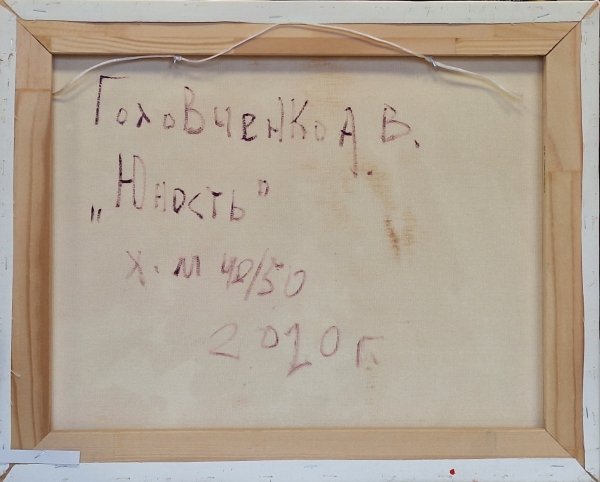 Головченко А. В.
„Юность"
х. м 40/50
2010 г.